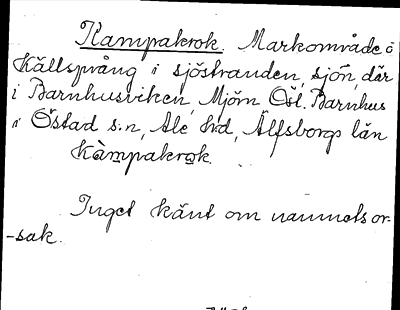 Kampakrok. Markområde o
Källsprång i sjöstranden, sjön, där
i Barnhusviken, Mjörn Öst. Barnhus
i Östad s:n, Ale hd, Älfsborgs län
Kàmpakrok.
Inget känt om namnets or-
-sak.